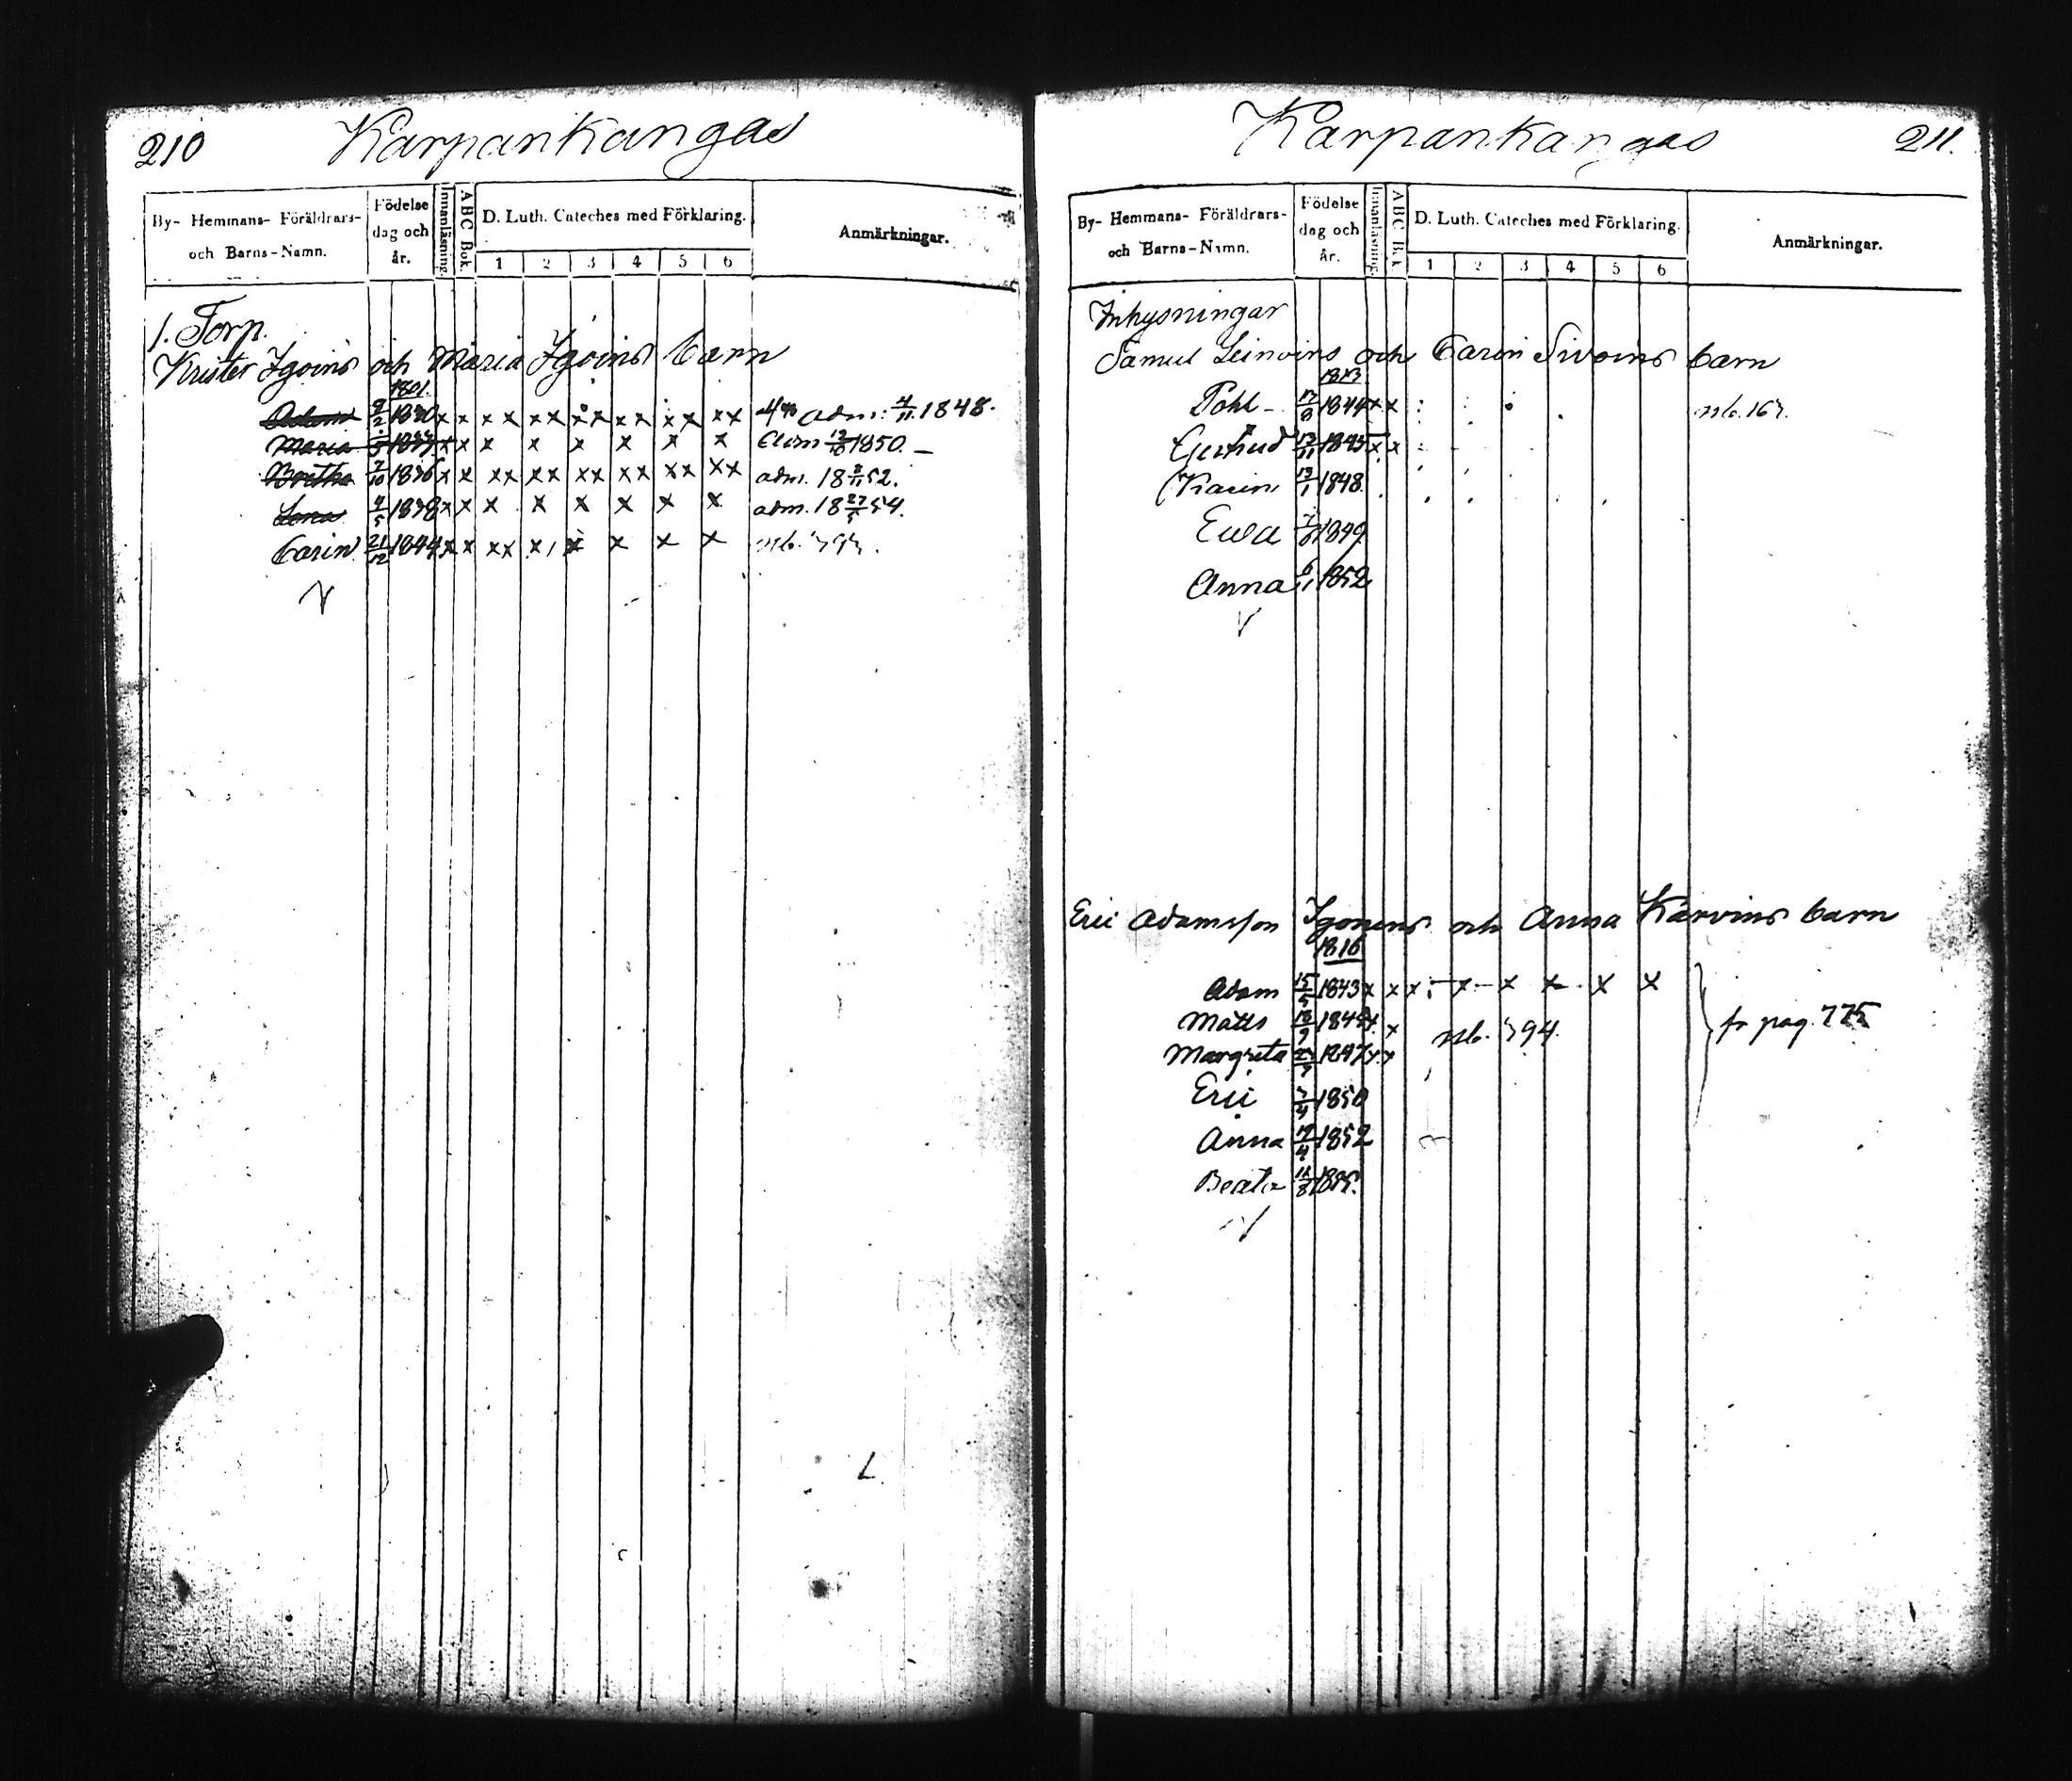 210 Karpankangas
By- Hemmans- Föräldrars- och Barns-Namn. Födelse dag och år. Innanläsning. ABC Bok. D. Luth. Cateches med Förklaring. 1 2 3 4 5 6 Anmärkningar.
1. Torp.
Krister Igoins och Maria Igoins barn
1801.
Adam 2/2 1830 x x x x x x x x x x x x x x adm: 4/11 1848.
Maria x x x x x x x x adm 1850.
Bertha 7/10 1836 x x xx xx xx xx xx xx adm. 18 52.
Lena 4/5 1838 x x x x x x x x adm. 18 27/5 54.
Carin 21/12 1844 x x xx x x x x x
Karpankangas 211.
By- Hemmans- Föräldrars- och Barns-Namn. Födelse dag och år. Innanläsning. ABC Bok. D. Luth. Cateches med Förklaring. 1 2 3 4 5 6 Anmärkningar.
Inhysningar
Samuel Leinoins och Carin Sivoins barn
1813
Påhl 17/8 1844 x x
Gertrud 1845 x x
Karin 13/1 1848.
Ewa 1849
Anna 6/11 1852
Eric Adamsson Igonens och Anna Karvins barn
1816
Adam 15/5 1843 x x x x x x x x
Matts 18/9 1845 x x 394.
Margreta 1847 x x fr pag. 775
Eric 3/4 1850
Anna 19/4 1852
Beata 1855.